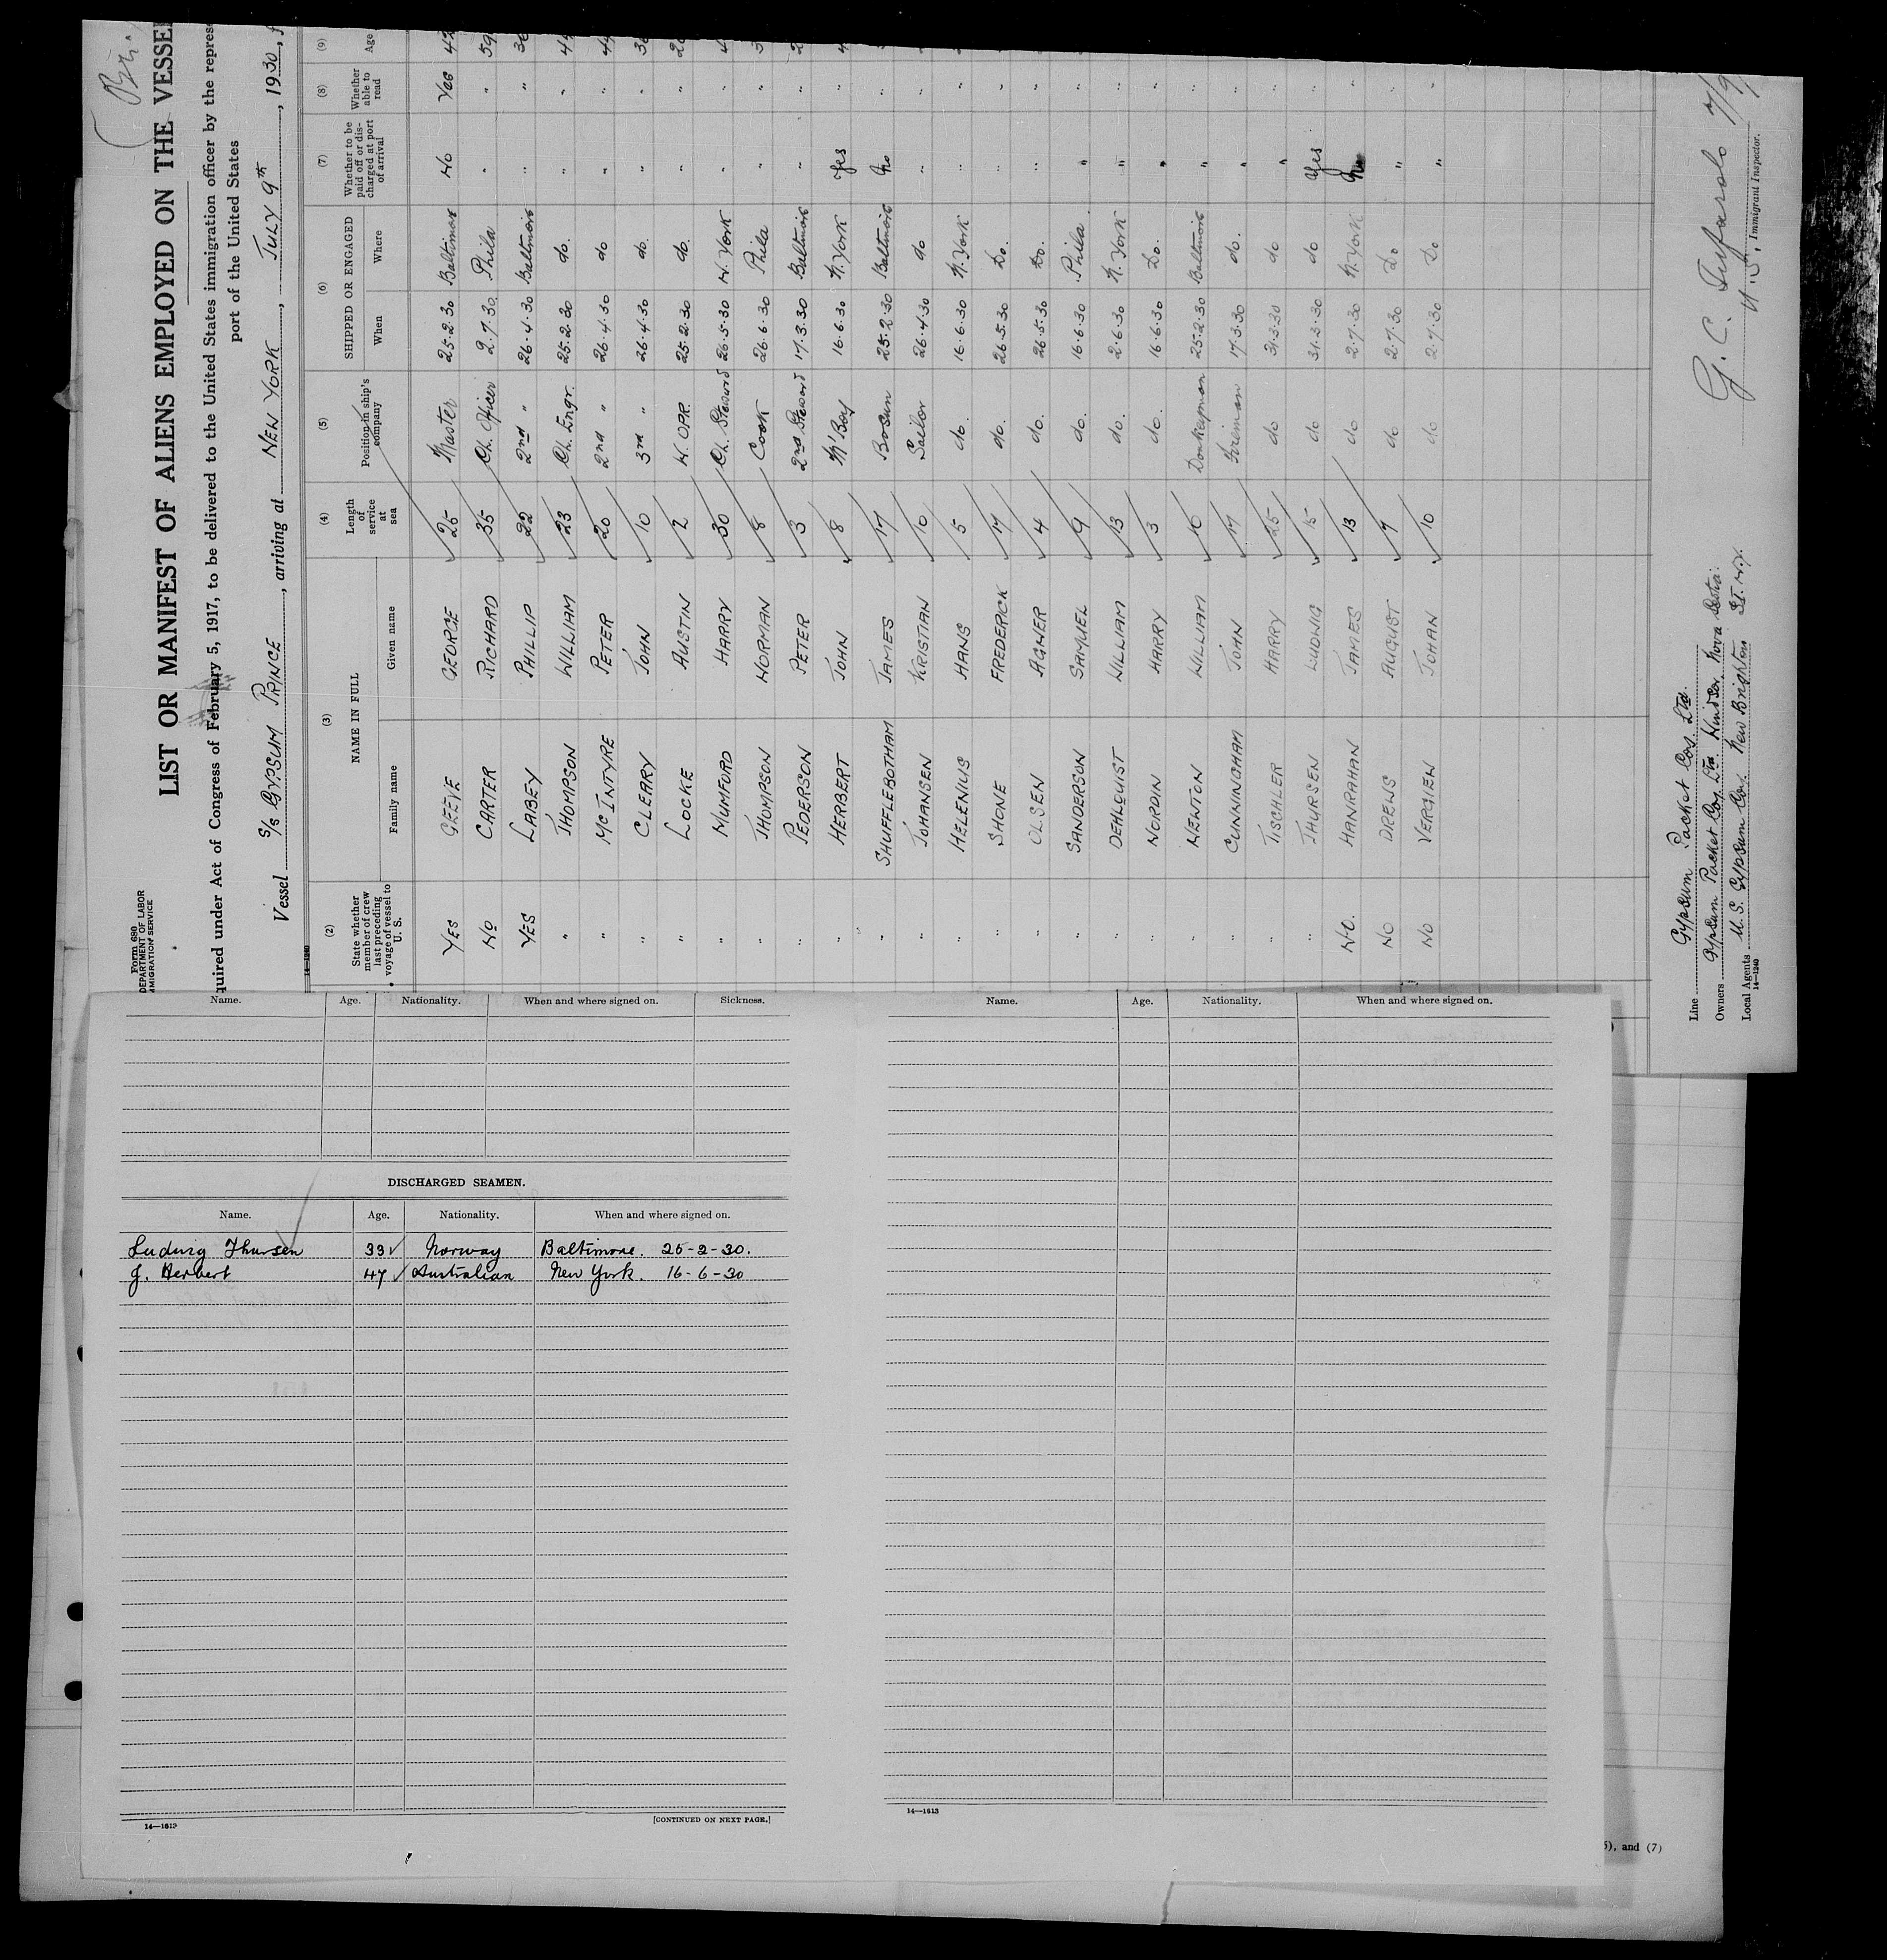 Br.
Form 680
DEPARTMENT OF LABOR
IMMIGRATION SERVICE
LIST OR MANIFEST OF ALIENS EMPLOYED ON THE VESSE
quired under Act of Congress of February 5, 1917, to be delivered to the United States immigration officer by the repres
port of the United States
Vessel S/S GYPSUM PRINCE, arriving at NEW YORK, JULY 9th, 1930, f
14-1240
(2) (3) (4) (5) (6) (7) (8) (9)
State whether member of crew last preceding voyage of vessel to U. S. NAME IN FULL Family name Given name Length of service at sea Position in ship's company SHIPPED OR ENGAGED When Where Whether to be paid off or discharged at port of arrival Whether able to read Age
YES GEEVE GEORGE 25 Master 25.2.30 Baltimore No Yes 42
NO CARTER RICHARD 35 Ch. Officer 2.7.30 Phila " " 59
YES LABEY PHILLIP 22 2nd " 26.4.30 Baltimore " "
" THOMPSON WILLIAM 23 Ch. Engr. 25.2.30 do. " "
" McINTYRE PETER 20 2nd " 26.4.30 do " "
" CLEARY JOHN 10 3rd " 26.4.30 do. " "
" LOCKE AUSTIN 2 W. OPR. 25.2.30 do. " "
" MUMFORD HARRY 30 Ch. Steward 26.5.30 N. York " "
" THOMPSON NORMAN 8 Cook 26.6.30 Phila " "
" PEDERSON PETER 3 2nd Steward 17.3.30 Baltimore " "
" HERBERT JOHN 8 M'Boy 16.6.30 N. York Yes "
" SHUFFLEBOTHAM JAMES 17 Bosun 25.2.30 Baltimore No "
" JOHANSEN KRISTIAN 10 Sailor 26.4.30 do " "
" HELENIUS HANS 5 do. 16.6.30 N. York " "
" SHONE FREDERICK 17 do. 26.5.30 Do. " "
" OLSEN AGNER 4 do. 26.5.30 Do. " "
" SANDERSON SAMUEL 9 do. 16.6.30 Phila. " "
" DEHLQUIST WILLIAM 13 do. 2.6.30 N. York " "
" NORDIN HARRY 3 do. 16.6.30 Do. " "
" NEWTON WILLIAM 16 Donkeyman 25.2.30 Baltimore " "
" CUNNINGHAM JOHN 17 Fireman 17.3.30 do. " "
" TISCHLER HARRY 25 do 31.3.30 do " "
" THURSEN LUDWIG 15 do 31.3.30 do Yes "
NO. HANRAHAN JAMES 13 do 2.7.30 N. York No "
NO DREWS AUGUST 7 do 2.7.30 Do " "
NO VERGIEN JOHAN 10 do 2.7.30 Do " "
Line Gypsum Packet Coy. Ltd.
Owners Gypsum Packet Coy. Ltd. Windsor. Nova Scotia.
Local Agents U. S. Gypsum Coy. New Brighton S.I. N.Y.
14-1240
G. C. 7/9
U. S. Immigrant Inspector.
Name. Age. Nationality. When and where signed on. Sickness.
DISCHARGED SEAMEN.
Name. Age. Nationality. When and where signed on.
Ludwig Thursen 33 Norway Baltimore. 25-2-30.
J. Herbert 47 Australian New York. 16-6-30
14—1613
[CONTINUED ON NEXT PAGE.]
Name. Age. Nationality. When and where signed on.
14—1613
5), and (7)